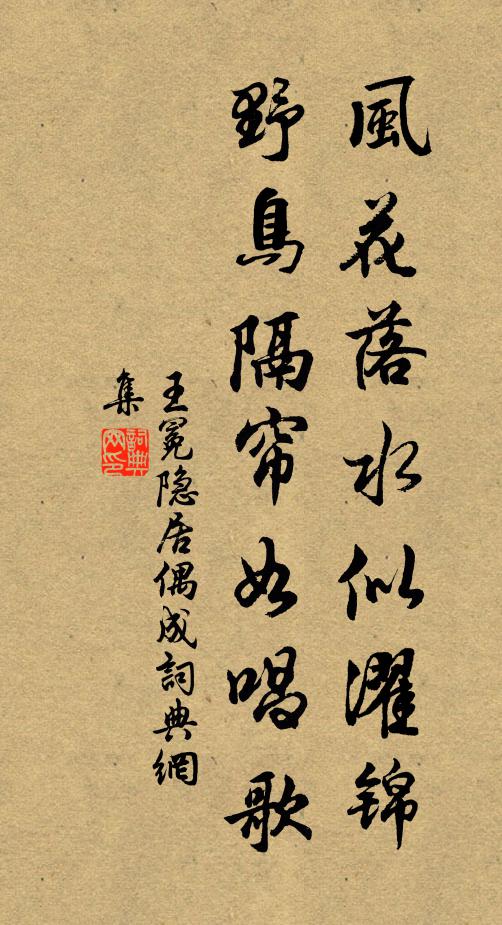 風花落水似濯锦
野鳥隔帘如唱歌
王冕隐居偶成詞典網
集
詞典
网印